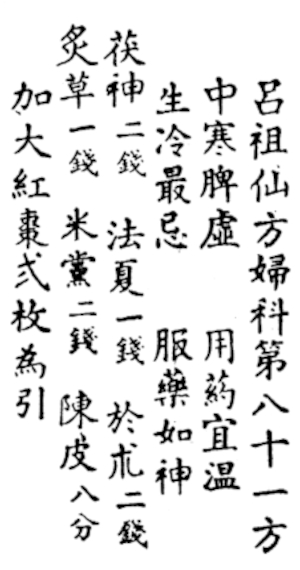 呂祖仙方婦科第八十一方
中寒脾虛 用葯宜溫
生冷最忌 服藥如神
茯神二錢 法夏一錢 於朮二錢
炙草一錢 米黨二錢 陳皮八分
加大紅棗弍枚為引